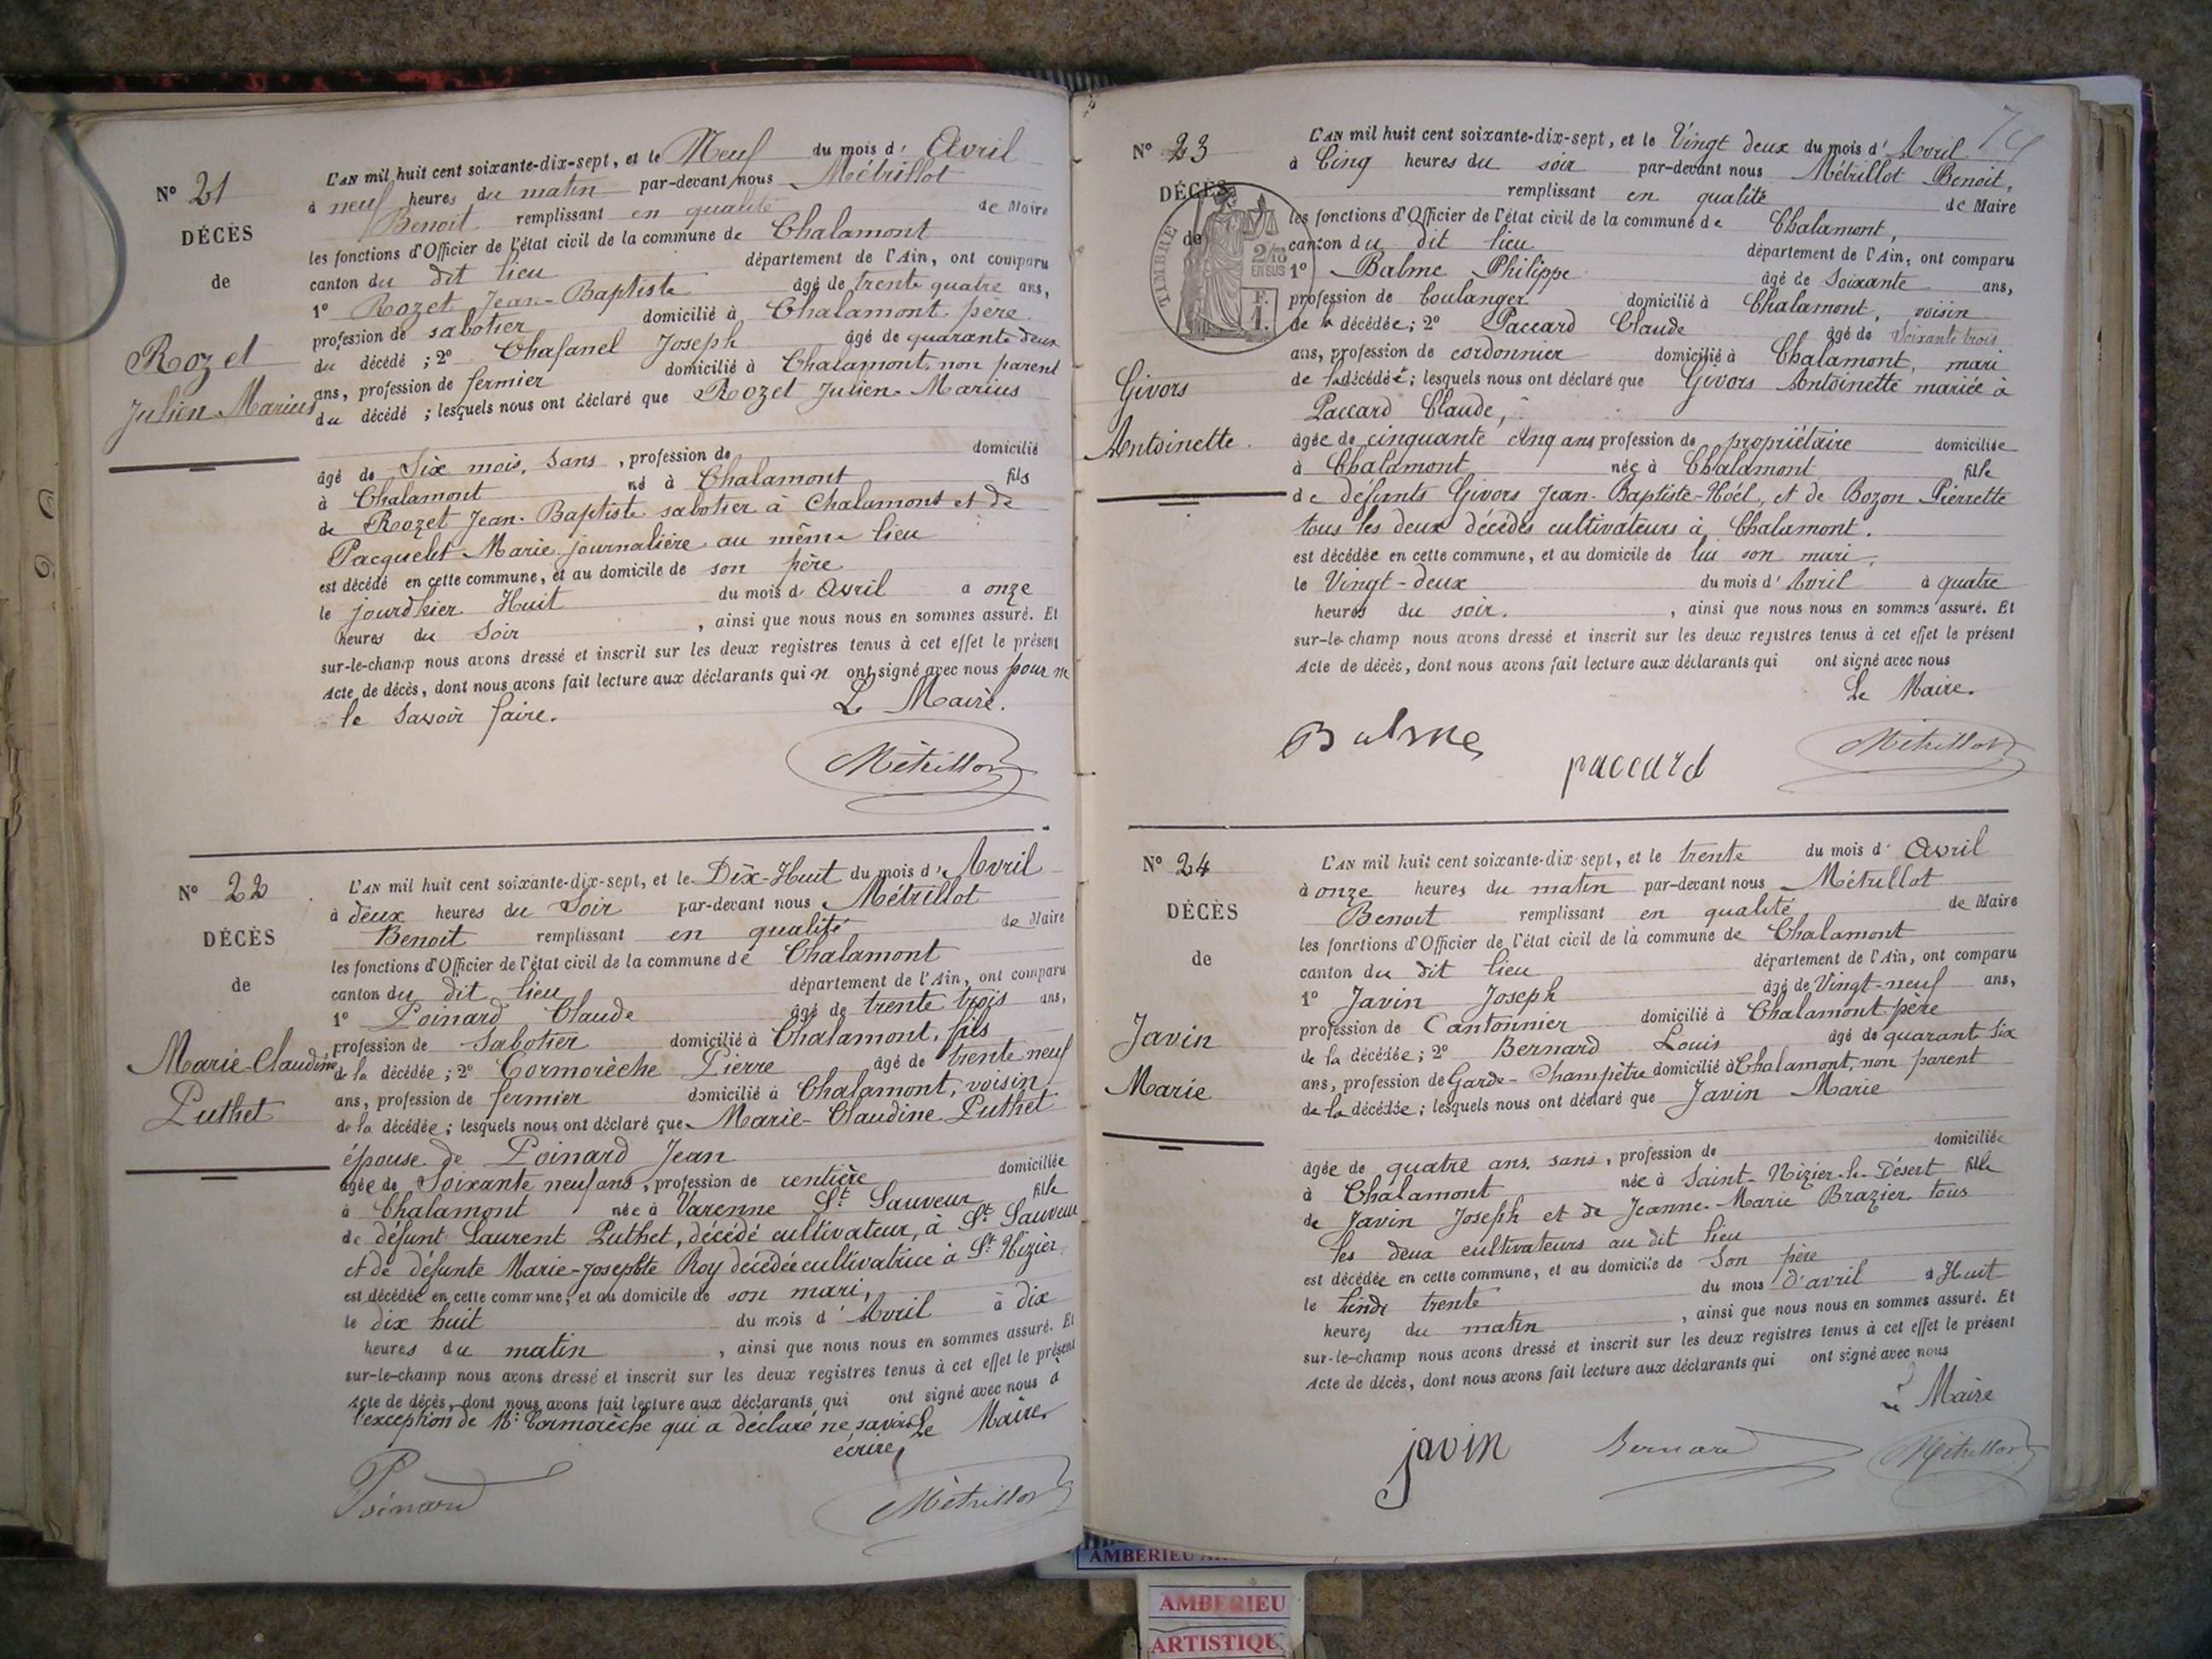 N° 21
DÉCÈS
de
Rozet
Julien Marius
L'AN mil huit cent soixante-dix-sept, et le Neuf du mois d' Avril
à neuf heures du matin par-devant nous Métrillot
Benoit remplissant en qualité de Maire
les fonctions d'Officier de l'état civil de la commune de Chalamont
canton du dit lieu département de l'Ain, ont comparu
1° Rozet Jean-Baptiste âgé de trente quatre ans,
profession de sabotier domicilié à Chalamont père
du décédé ; 2° Chafanel Joseph âgé de quarante deux
ans, profession de fermier domicilié à Chalamont, non parent
du décédé ; lesquels nous ont déclaré que Rozet Julien-Marius
âgé de Six mois, sans , profession de domicilié
à Chalamont né à Chalamont fils
de Rozet Jean-Baptiste sabotier à Chalamont et de
Pacquelet Marie journalière au même lieu
est décédé en cette commune, et au domicile de son père
le jourdhier Huit du mois d Avril a onze
heures du Soir , ainsi que nous nous en sommes assuré. Et
sur-le-champ nous avons dressé et inscrit sur les deux registres tenus à cet effet le présent
Acte de décès, dont nous avons fait lecture aux déclarants qui n ont signé avec nous pour ne
le savoir faire. Le Maire.
Métrillot
N° 22
DÉCÈS
de
Marie-Claudine
Puthet
L'AN mil huit cent soixante-dix-sept, et le Dix-Huit du mois d' Avril
à deux heures du Soir par-devant nous Métrillot
Benoit remplissant en qualité de Maire
les fonctions d'Officier de l'état civil de la commune de Chalamont
canton du dit lieu département de l'Ain, ont comparu
1° Poinard Claude âgé de trente trois ans,
profession de Sabotier domicilié à Chalamont, fils
de la décédée ; 2° Cormorèche Pierre âgé de trente neuf
ans, profession de fermier domicilié à Chalamont, voisin
de la décédée ; lesquels nous ont déclaré que Marie-Claudine Puthet
épouse de Poinard Jean
âgée de Soixante neuf ans , profession de rentière domiciliée
à Chalamont née à Varenne St Sauveur fille
de défunt Laurent Puthet, décédé cultivateur, à St Sauveur
et de défunte Marie-Josephte Roy décédée cultivatrice à St Nizier
est décédée en cette commune, et au domicile de son mari,
le dix huit du mois d' Avril à dix
heures du matin , ainsi que nous nous en sommes assuré. Et
sur-le-champ nous avons dressé et inscrit sur les deux registres tenus à cet effet le présent
Acte de décès, dont nous avons fait lecture aux déclarants qui ont signé avec nous à
l'exception de Mr Cormorèche qui a déclaré ne savoir Le Maire
écrire,
Poinard Métrillot
74
N° 23
DÉCÈS
de
TIMBRE
2/10
EN SUS
F.
1.
Givors
Antoinette.
L'AN mil huit cent soixante-dix-sept, et le Vingt deux du mois d' Avril
à Cinq heures du soir par-devant nous Métrillot Benoit,
remplissant en qualité de Maire
les fonctions d'Officier de l'état civil de la commune de Chalamont,
canton du dit lieu département de l'Ain, ont comparu
1° Balme Philippe âgé de Soixante ans,
profession de boulanger domicilié à Chalamont, voisin
de la décédée ; 2° Paccard Claude âgé de Soixante trois
ans, profession de cordonnier domicilié à Chalamont, mari
de la décédée ; lesquels nous ont déclaré que Givors Antoinette mariée à
Paccard Claude,
âgée de cinquante cinq ans profession de propriétaire domiciliée
à Chalamont née à Chalamont fille
de défunts Givors Jean-Baptiste-Noël, et de Bozon Pierrette
tous les deux décédés cultivateurs à Chalamont.
est décédée en cette commune, et au domicile de lui son mari,
le Vingt-deux du mois d' Avril à quatre
heures du soir. , ainsi que nous nous en sommes assuré. Et
sur-le-champ nous avons dressé et inscrit sur les deux registres tenus à cet effet le présent
Acte de décès, dont nous avons fait lecture aux déclarants qui ont signé avec nous
Le Maire.
Balme paccard Métrillot
N° 24
DÉCÈS
de
Javin
Marie
L'AN mil huit cent soixante-dix-sept, et le trente du mois d' Avril
à onze heures du matin par-devant nous Métrillot
Benoit remplissant en qualité de Maire
les fonctions d'Officier de l'état civil de la commune de Chalamont
canton du dit lieu département de l'Ain, ont comparu
1° Javin Joseph âgé de Vingt-neuf ans,
profession de Cantonnier domicilié à Chalamont père
de la décédée ; 2° Bernard Louis âgé de quarant six
ans, profession de Garde-Champêtre domicilié à Chalamont, non parent
de la décédée ; lesquels nous ont déclaré que Javin Marie
âgée de quatre ans. sans , profession de domiciliée
à Chalamont née à Saint-Nizier-le-Désert fille
de Javin Joseph et de Jeanne-Marie Brazier tous
les deux cultivateurs au dit lieu
est décédée en cette commune, et au domicile de Son père
le lundi trente du mois d'avril à Huit
heures du matin , ainsi que nous nous en sommes assuré. Et
sur-le-champ nous avons dressé et inscrit sur les deux registres tenus à cet effet le présent
Acte de décès, dont nous avons fait lecture aux déclarants qui ont signé avec nous
Le Maire
javin Bernard Métrillot
AMBERIEU
AMBERIEU
ARTISTIQU